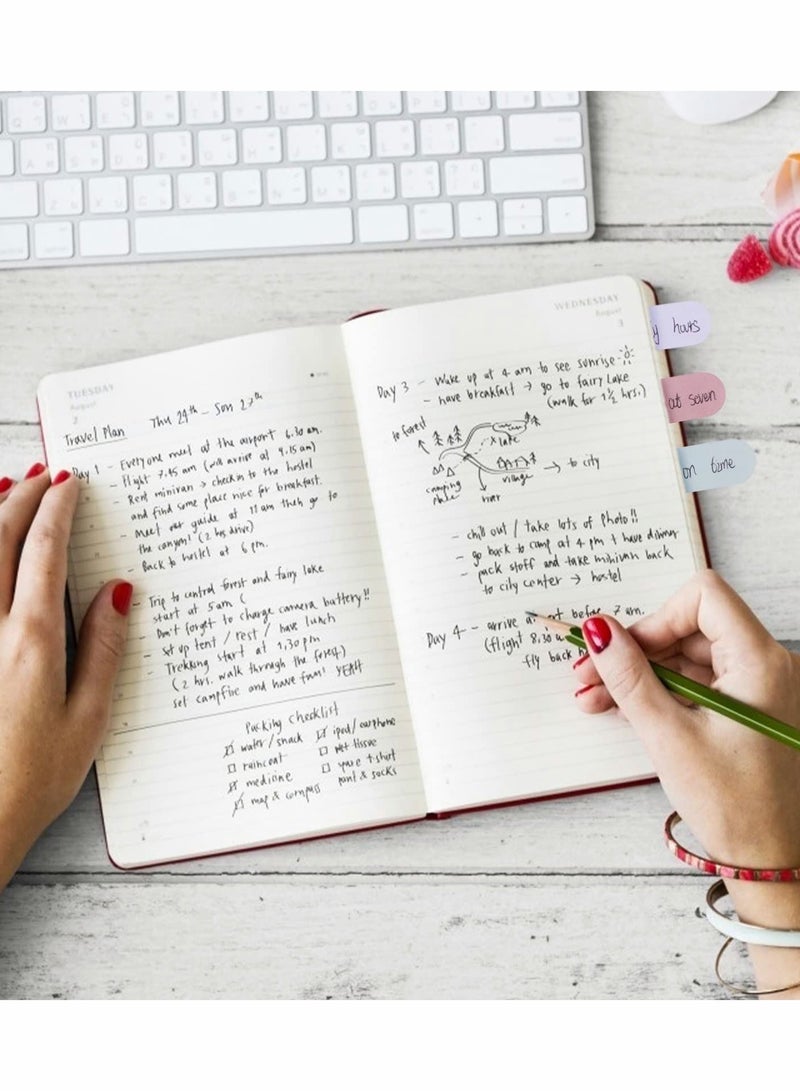 TUESDAY
August
2
Travel Plan Thu 24th - Sun 27th
Day 1 - Everyone meet at the airport 6.30 am.
- Flight 7.45 am (will arrive at 9.15 am)
- Rent minivan → checkin to the hostel
and find some place nice for breakfast.
- Meet our guide at 11 am then go to
the canyon! (2 hrs drive)
- Back to hostel at 6 pm.
- Trip to central forest and fairy lake
start at 5 am (
- Don't forget to charge camera battery!!
- Set up tent / rest / have lunch
- Trekking start at 1.30 pm
(2 hrs. walk through the forest)
set campfire and have fun! YEAH
Packing Checklist
water/snack
raincoat
medicine
map & compass
ipod/earphone
wet tissue
spare t-shirt
pant & socks
WEDNESDAY
August
3
Day 3 - Wake up at 4 am to see sunrise
- have breakfast → go to fairy Lake
(walk for 1 1/2 hrs.)
to forest
lake
camping
place
river
village
→ to city
- chill out / take lots of photo!!
- go back to camp at 4 pm + have dinner
- pack stuff and take minivan back
to city center → hostel
Day 4 - arrive before 7 am.
(flight 8.30
fly back
hours
at seven
on time